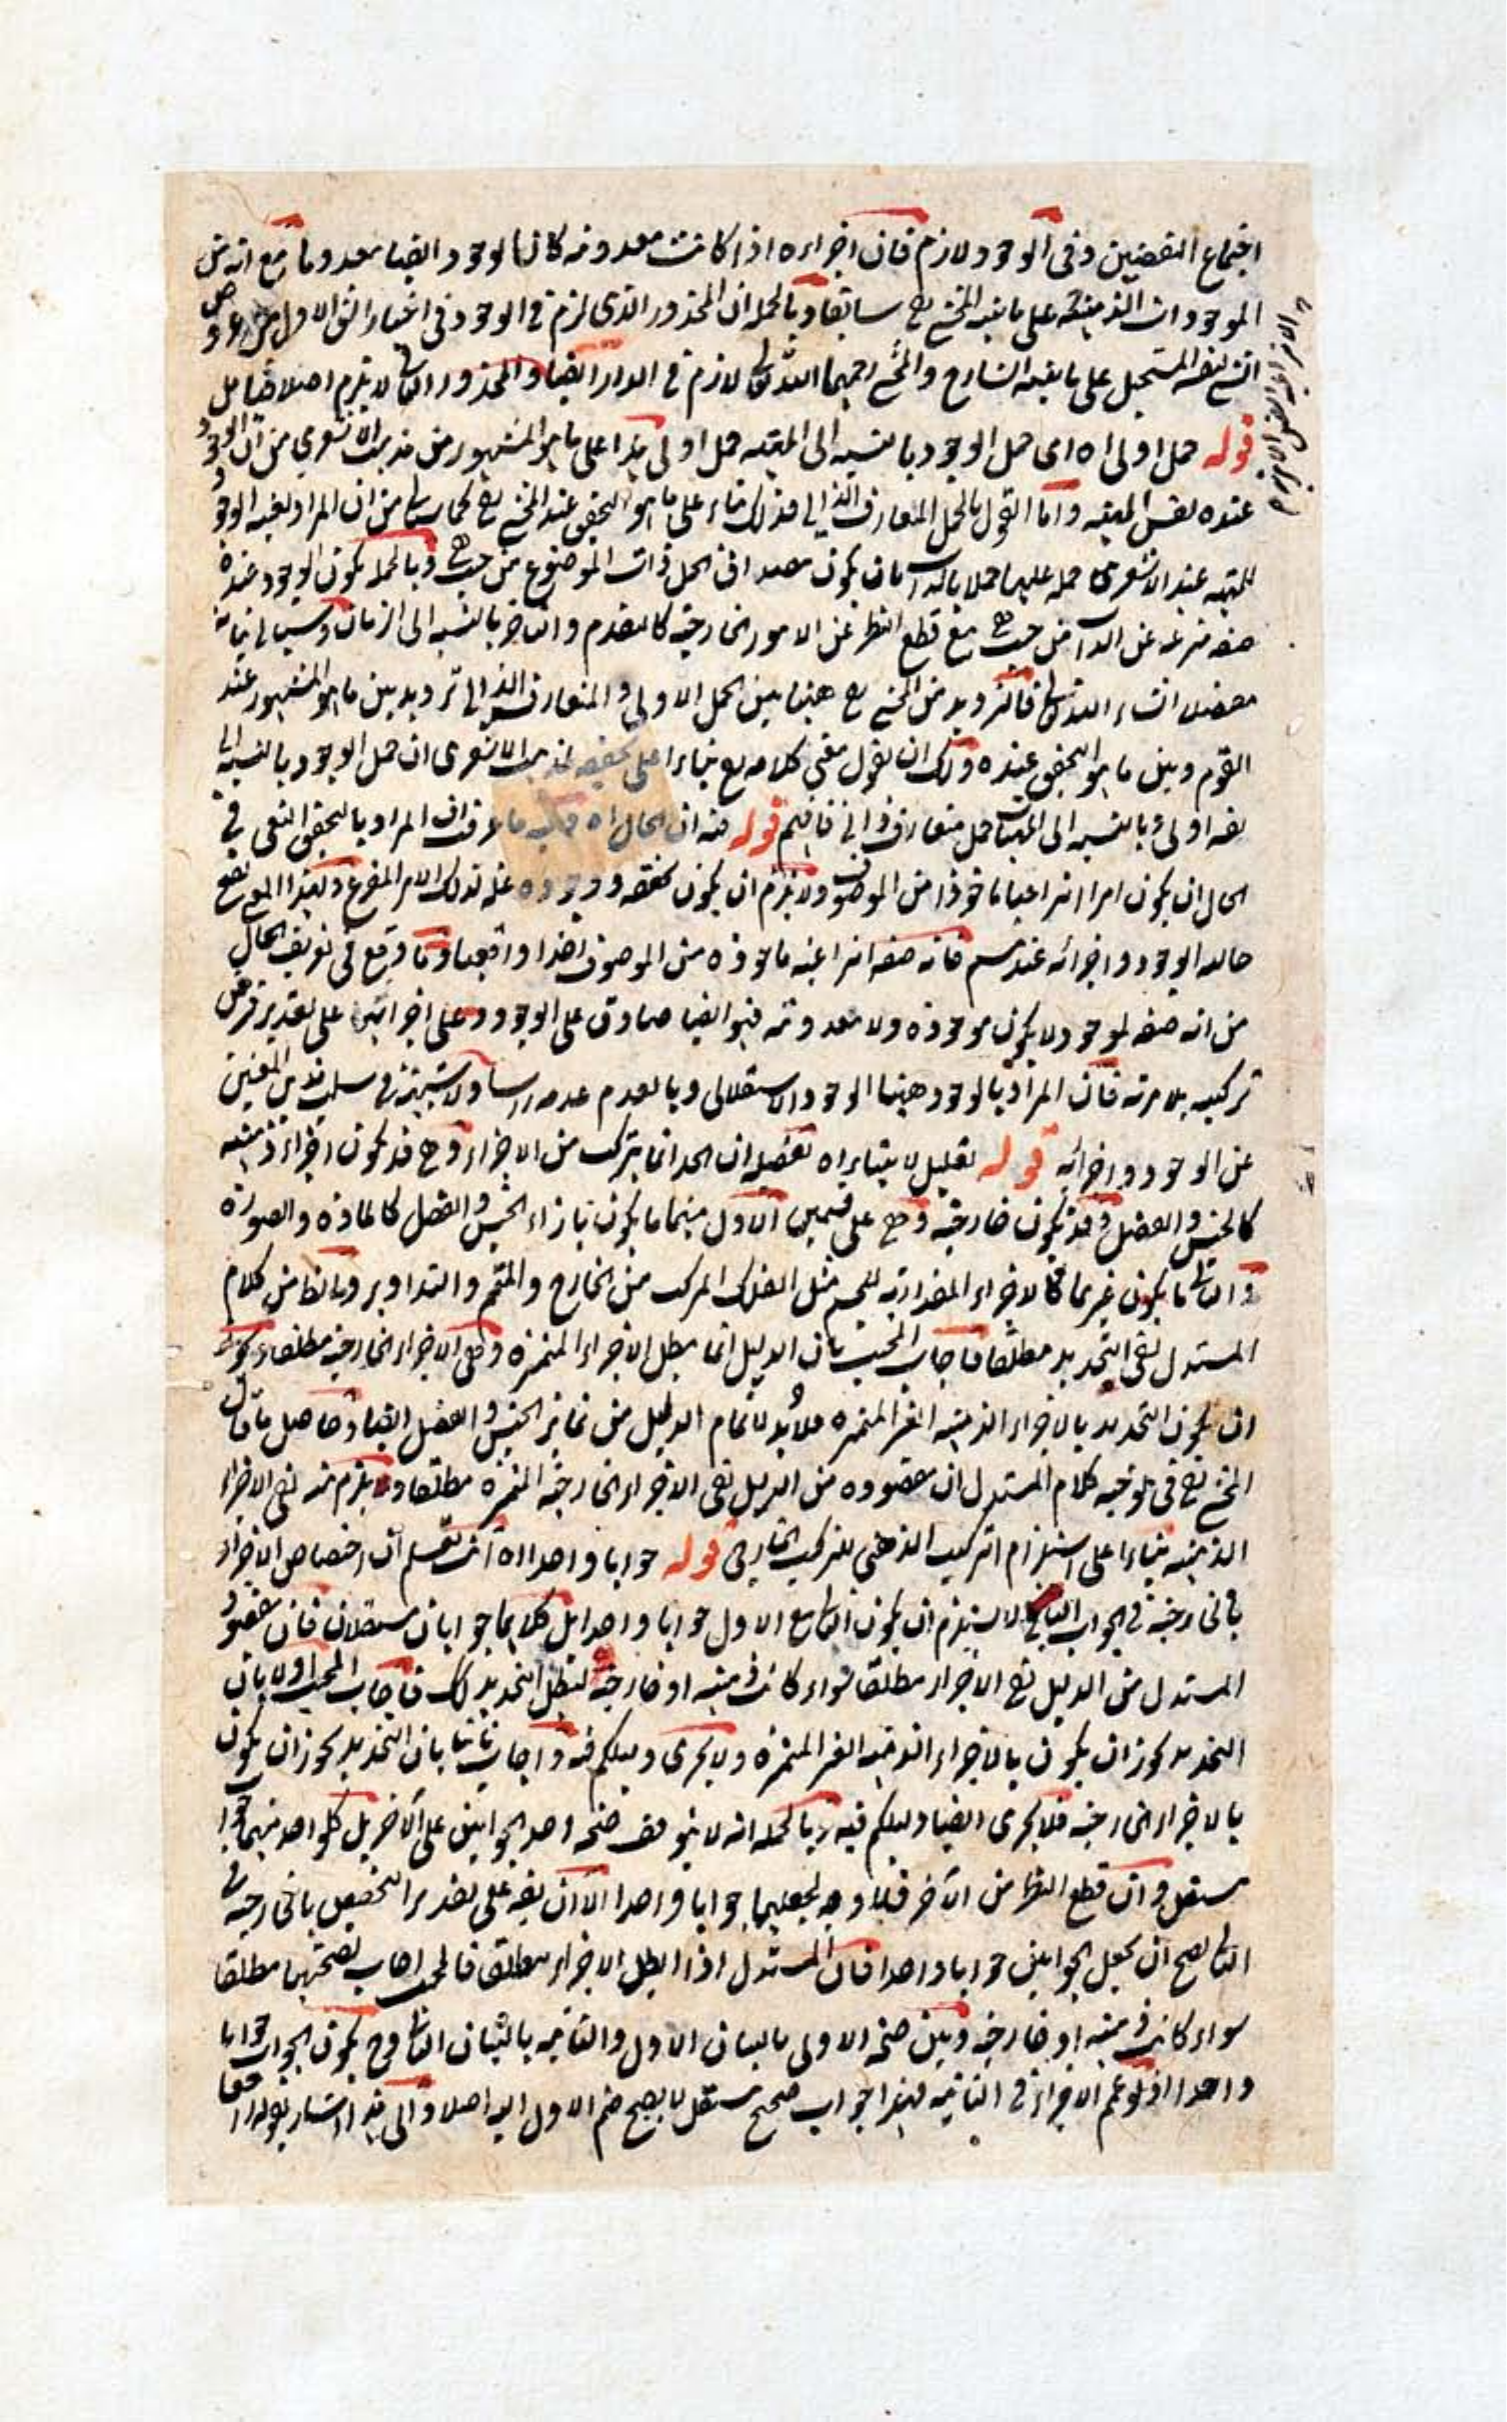 اجتماع النقيضين وفى الوجود لازم فان اجزاءه اذا كانت معدومة كان الوجود ايضا معدوما مع انه من
الموجودات الذهنية على ما بينه المحشى رح سابقا وبالجملة ان المحذور الذى لزم فى الوجود فى اختيار الشق الاول
الشى لنفسه المستحيل على ما بينه الشارح والمحشى رحمهما الله تعالى لازم فى الدار ايضا والمحذور الثانى لا يلزم اصلا فتامل
قوله حمل اولى اه اى حمل الوجود بالنسبة الى المهية حمل اولى هذا على ما هو المشهور من مذهب الاشعرى من ان الوجود
عنده نفس المهية واما القول بالحمل المتعارف الذاتى فذلك بناء على ما هو التحقيق عند المحشى رح كما سيأتى من ان المراد بعينية الوجود
للمهية عند الاشعرى حمله عليها حملا بالذات بان يكون مصداق الحمل ذات الموضوع من حيث هى وبالجملة يكون الوجود عنده
صفة منتزعة عن الذات من حيث هى مع قطع النظر عن الامور الخارجية كالتقدم والتاخر بالنسبة الى الزمان وسياتى بيانه
مفصلا انشاء الله تعالى فالترديد من المحشى رح ههنا بين الحمل الاولى والمتعارف الذاتى ترديد بين ما هو المشهور عند
القوم وبين ما هو التحقيق عنده ولك ان تقول معنى كلامه رح بناءا على تحقيقه لمذهب الاشعرى ان حمل الوجود بالنسبة الى
نفسه اولى وبالنسبة الى المهيات حمل متعارف ذاتى فافهم قوله منه ان الحال اه ما عرفت ان المراد بالتحقق التبعى فى
الحال ان يكون امرا انتزاعيا ماخوذا من الموصوف ولا يلزم ان يكون تحققه ووجوده علة لذلك الامر المنتزع وبهذا المعنى تصح
حالية الوجود واجزائه عندهم فانه صفة انتزاعية ماخوذة من الموصوف اخذا واقعيا وما وقع فى تعريف الحال
من انه صفة لموجود لا يكون موجودة ولا معدومة فهو ايضا صادق على الوجود وعلى اجزائه على تقدير فرض
تركيبه بلا مرية فان المراد بالوجود ههنا الوجود الاستقلالى وبالعدم عدمه راسا ولا شبهة فى سلب هذين المعنيين
عن الوجود واجزائه قوله تعليل لا بتنايراه تفصيله ان الحد انما يتركب من الاجزاء وهى قد يكون اجزاء ذهنية
كالجنس والفصل وقد يكون خارجية وهى على قسمين الاول منهما ما يكون بازاء الجنس والفصل كالمادة والصورة
والثانى ما يكون غيرهما كالاجزاء المقدارية للجسم مثل الفلك المركب من الخارج والمتمم والتداوير وبالنظر من كلام
المستدل نفى التحديد مطلقا فاجاب المجيب بان الدليل انما يبطل الاجزاء المتميزة وهى الاجزاء الخارجية مطلقا ويجوز
ان يكون التحديد بالاجزاء الذهنية الغير المتميزة فلابد لاتمام الدليل من تمايز الجنس والفصل ايضا وحاصل ما قال
المحشى رح فى توجيه كلام المستدل ان مقصوده من الدليل نفى الاجزاء الخارجية المتميزة مطلقا ويلزم منه نفى الاجزاء
الذهنية بناءا على استلزام التركيب الذهنى للتركيب الخارجى قوله جوابا واحدا اه انت تعلم ان اختصاص الاجزاء
بالخارجية فى الجواب الثانى لا يستلزم ان يكون الثانى مع الاول جوابا واحدا بل كلاهما جوابان مستقلان فان مقصود
المستدل من الدليل نفى الاجزاء مطلقا سواء كانت ذهنية او خارجية ليبطل التحديد لك فاجاب المجيب اولا بان
التحديد يجوز ان يكون بالاجزاء الذهنية الغير المتميزة ولا يجرى دليلكم فيه واجاب ثانيا بان التحديد يجوز ان يكون
بالاجزاء الخارجية فلا يجرى ايضا دليلكم فيه وبالجملة انه لا يتوقف صحة احد الجوابين على الآخر بل كل واحد منهما جواب
مستقل وان قطع النظر من الآخر فلا وجه لجعلهما جوابا واحدا الا ان يقه على تقدير التخصيص بالخارجية فى
الثانى يصح ان يجعل الجوابين جوابا واحدا فان المستدل اذا ابطل الاجزاء مطلقا فالمجيب اجاب بصحتهما مطلقا
سواء كانت ذهنية او خارجية وبين صحة الاولى بالبيان الاول والثانية بالبيان الثانى وح يكون الجواب جوابا
واحدا اذ لو عمم الاجزاء فى الثانية فهذا جواب صحيح مستقل لا يصح ضم الاول اليه اصلا والى هذا اشار بقوله